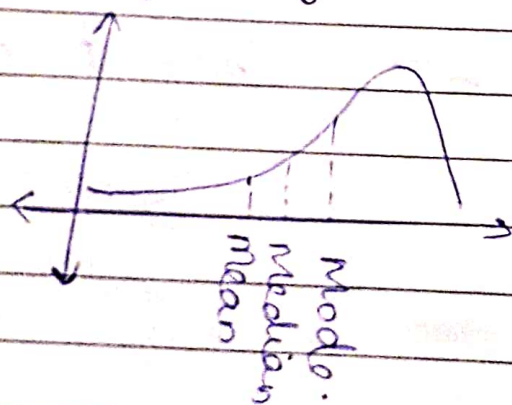 Mean
Median
Mode.